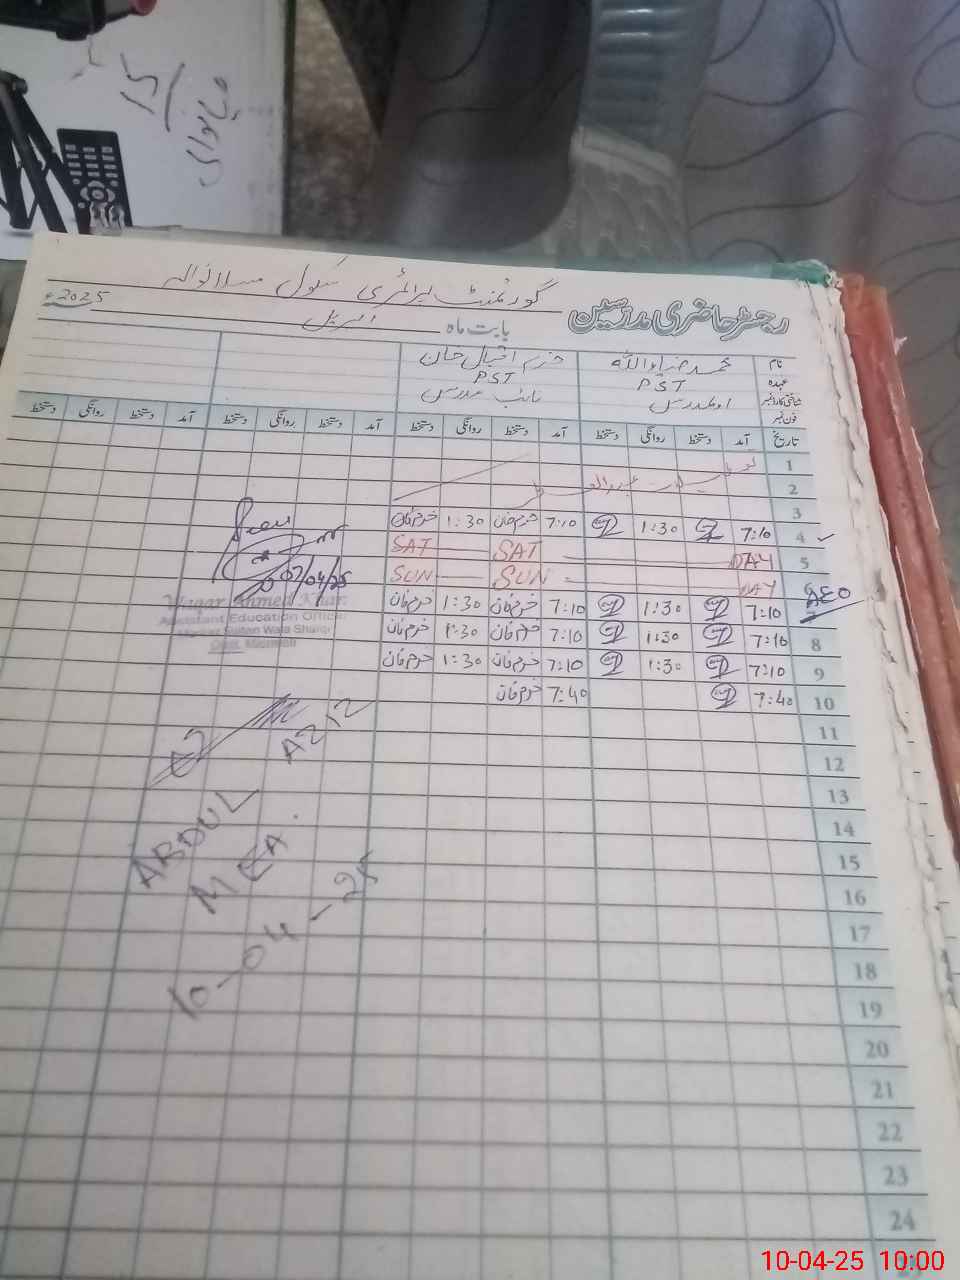 گورنمنٹ پرائمری سکول مسلانوالہ
رجسٹر حاضری مدرسین
بابت ماہ اپریل 2025ء
نام محمد ضیاء اللہ خرم اقبال خان
عہدہ PST PST
شناختی کارڈ نمبر
فون نمبر
تاریخ آمد دستخط روانگی دستخط آمد دستخط روانگی دستخط آمد دستخط روانگی دستخط آمد دستخط روانگی دستخط
1
2
3
4 7:10 1:30 7:10 خرم خان 1:30 خرم خان
5 DAY SAT SAT
6 DAY SUN SUN
AEO
7:10 1:30 7:10 خرم خان 1:30 خرم خان
8 7:10 1:30 7:10 خرم خان 1:30 خرم خان
9 7:10 1:30 7:10 خرم خان 1:30 خرم خان
10 7:40 7:40 خرم خان
11
12
13
14
15
16
17
18
19
20
21
22
23
24
07/04/25
Waqar Ahmed Khan
Assistant Education Officer
Markaz Sultan Wala Sharqi
Distt. Mianwali
ABDUL AZIZ
MEA.
10-04-25
10-04-25 10:00